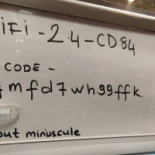 iFi - 2.4 - CD84
CODE -
mfd7wh99ffk
out minuscule